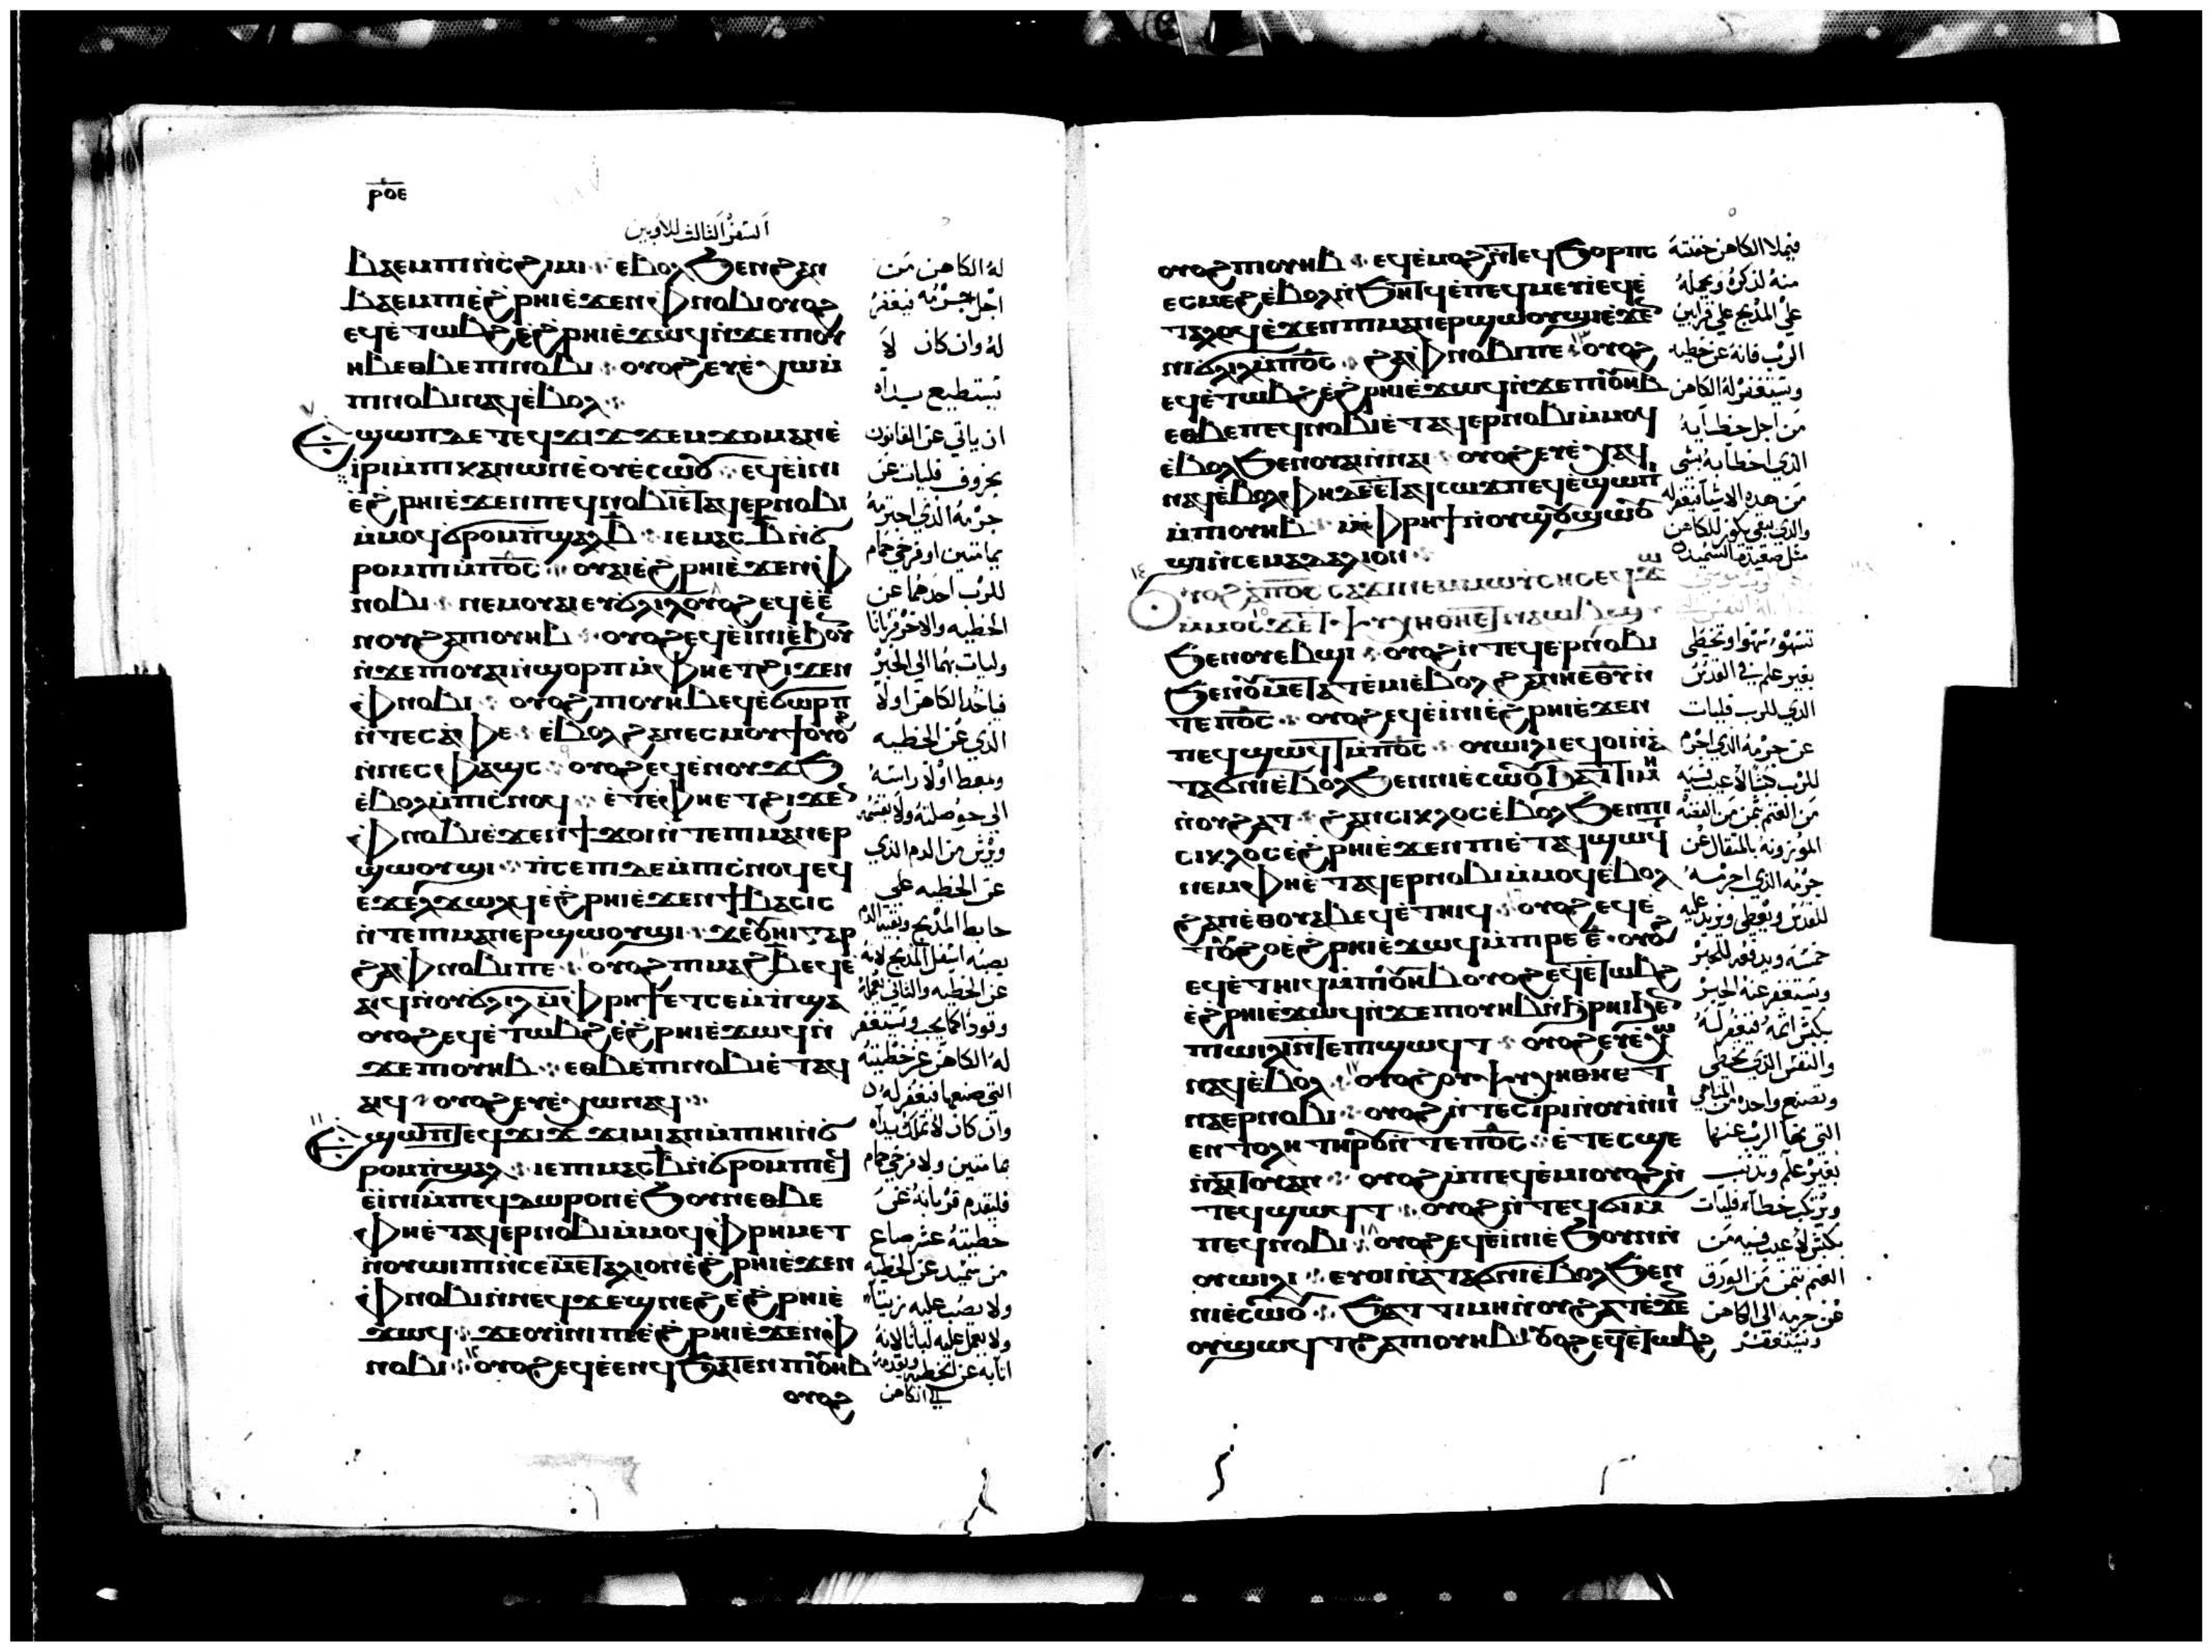 ⲣⲟⲉ
السفر الثالث للاويين
ⲃⲁⲉⲙⲡⲓⲛ̀ⲥϩⲓⲙⲓ ⁘ ⲉⲃⲟⲗϧⲉⲛϩⲁⲛ
ⲃⲁⲉⲙⲡⲓ ⲉ̀ϩⲣⲏⲓⲉ̀ϫⲉⲛⲫⲛⲟⲃⲓ ⲟⲩⲟϩ
ⲉϥⲉ̀ⲧⲱⲃϩ ⲉ̀ϩⲣⲏⲓⲉ̀ϫⲱϥ ⲛ̀ϫⲉⲡⲓⲟⲩ
ⲏⲃ ⲉⲑⲃⲉⲡⲓⲛⲟⲃⲓ ⁘ ⲟⲩⲟϩ ⲉⲩⲉ̀ⲭⲱ ⲙ̀
ⲡⲓⲛⲟⲃⲓ ⲛⲁϥ ⲉ̀ⲃⲟⲗ ⁘
ⲁ̀ϣⲱⲡ ⲇⲉ ⲧⲉϥϫⲓϫ ϫⲉⲙϫⲟⲙ ⲁⲛ ⲉ̀
ⲓ̀ⲣⲓ ⲙ̀ⲡⲓⲭⲁⲛⲱⲡ ⲉ̀ⲟⲩⲉ̀ⲥⲱⲟⲩ ⁘ ⲉϥⲉ̀ⲓ̀ⲛⲓ
ⲉ̀ϩⲣⲏⲓⲉ̀ϫⲉⲛⲡⲉϥⲛⲟⲃⲓ ⲉ̀ⲧⲁϥⲉⲣⲛⲟⲃⲓ
ⲙ̀ⲙⲟϥ ϭⲣⲟⲙⲡⲛ̀ϣⲁⲗ ⲃ̅ ⁘ ⲓⲉ ⲙⲁⲥ ⲃ̅ ⲛ̀ϭ
ⲣⲟⲙⲡⲓ ⲙ̀ⲡⲟ̅ⲥ̅ ⁘ ⲟⲩⲁⲓ ⲉ̀ϩⲣⲏⲓⲉ̀ϫⲉⲛⲫ
ⲛⲟⲃⲓ ⁘ ⲛⲉⲙⲟⲩⲁⲓ ⲉⲩϭⲗⲓⲗ ⲟⲩⲟϩ ⲉϥⲉ̀ⲉ̀
ⲛⲟⲩ ϩⲁⲡⲓⲟⲩⲏⲃ ⁘ ⲟⲩⲟϩ ⲉϥⲉ̀ⲓ̀ⲛⲓ ⲉ̀ϧⲟⲩ
ⲛ̀ϫⲉⲡⲓⲟⲩⲁⲓ ⲛ̀ϣⲟⲣⲡ ⲙ̀ⲫⲏⲉⲧϩⲓϫⲉⲛ
ⲫⲛⲟⲃⲓ ⁘ ⲟⲩⲟϩ ⲡⲓⲟⲩⲏⲃ ⲉϥⲉ̀ϭⲱⲣⲡ
ⲛ̀ⲧⲉⲥⲁ̀ⲫⲉ ⁘ ⲉ̀ⲃⲟⲗϩⲁⲡⲉⲥⲙⲟⲩϯ ⲟⲩⲟϩ
ⲛ̀ⲛⲉⲥⲫⲁϣⲥ ⁘ ⲟⲩⲟϩ ⲉϥⲉ̀ⲛⲟⲩϫϧ
ⲉ̀ⲃⲟⲗ ⲙ̀ⲡⲓⲥ̀ⲛⲟϥ ⁘ ⲉ̀ⲧⲉⲫⲏⲉⲧϩⲓϫⲉ
ⲫⲛⲟⲃⲓ ⲉ̀ϫⲉⲛϯϫⲟⲓ ⲛ̀ⲧⲉⲡⲓⲙⲁⲛⲉⲣ
ϣⲱⲟⲩϣⲓ ⁘ ⲡ̀ⲥⲉⲡⲓ ⲇⲉ ⲙ̀ⲡⲓⲥ̀ⲛⲟϥ ⲉϥ
ⲉ̀ϫⲉⲗϫⲱⲗϥ ⲉ̀ϩⲣⲏⲓⲉ̀ϫⲉⲛϯⲃⲁⲥⲓⲥ
ⲛ̀ⲧⲉⲡⲓⲙⲁⲛⲉⲣϣⲱⲟⲩϣⲓ ⁘ ϫⲉⲟⲩⲏⲓ ⲅⲁⲣ
ϩⲁⲫⲛⲟⲃⲓⲡⲉ ⁘ ⲟⲩⲟϩ ⲡⲓⲙⲁϩⲃ ⲉϥⲉ̀
ⲁⲓϥ ⲛ̀ⲟⲩϭⲗⲓⲗ ⲙ̀ⲫⲣⲏϯ ⲉⲧⲥⲉⲙⲡϣⲁ
ⲟⲩⲟϩ ⲉϥⲉ̀ⲧⲱⲃϩ ⲉ̀ϩⲣⲏⲓⲉ̀ϫⲱϥ ⲛ̀
ϫⲉⲡⲓⲟⲩⲏⲃ ⁘ ⲉⲑⲃⲉⲡⲓⲛⲟⲃⲓ ⲉ̀ⲧⲁϥ
ⲁⲓϥ ⁘ ⲟⲩⲟϩ ⲉⲩⲉ̀ⲭⲱ ⲛⲁϥ ⁘
ⲣⲟⲙⲡⲛ̀ϣⲁⲗ ⁘ ⲓⲉ ⲡⲓⲙⲁⲥ ⲃ̅ ⲛ̀ϭⲣⲟⲙⲡⲓ ⲉϥ
ⲉ̀ⲓ̀ⲛⲓ ⲙ̀ⲡⲉϥⲇⲱⲣⲟⲛ ⲉ̀ϧⲟⲩⲛ ⲉⲑⲃⲉ
ⲫⲏⲉ̀ⲧⲁϥⲉⲣⲛⲟⲃⲓ ⲙ̀ⲙⲟϥ ⲫⲣⲏⲙⲉⲧ
ⲛ̀ⲟⲩⲱⲓⲡⲓ ⲛ̀ⲥⲉⲙⲉⲧⲁⲗⲓⲟⲛ ⲉ̀ϩⲣⲏⲓⲉ̀ϫⲉⲛ
ⲫⲛⲟⲃⲓ ⲛ̀ⲛⲉϥϫⲉϣⲛⲉϩ ⲉ̀ϩⲣⲏⲓⲉ̀
ϫⲱϥ ⁘ ϫⲉⲟⲩⲓⲛⲓⲡⲉ ⲉ̀ϩⲣⲏⲓⲉ̀ϫⲉⲛⲫ
ⲛⲟⲃⲓ ⁘ ⲟⲩⲟϩ ⲉϥⲉ̀ⲉⲛϥ ϧⲁⲧⲉⲛⲡⲓⲟⲩⲏⲃ
ⲟⲩⲟϩ
له الكاهن من
اجل جرمه فيغفر
له وان كان لا
تستطيع يداه
ان ياتي عن القانون
بخروف فليات عن
جرمه الذي اجترمه
بيمامتين او فرخي حمام
للرب احدهما عن
الخطيه والاخر قربانا
وليات بهما الى الحبر
فياخذ الكاهن اولا
الذي عن الخطيه
ويرش من الدم الذي
عن الخطيه على
عن الخطيه والثاني يعمله
وقودا كما يجب ويستغفر
له الكاهن عن خطيته
التي صنعها فيغفر له
وان كان لا تملك يداه
يمامتين ولا فرخي حمام
فليقدم قربانه عن
خطيته عشر صاع
من سميد عن الخطيه
ولا يصب عليه زيتا
الى الكاهن
ⲟⲩⲟϩ ⲡⲓⲟⲩⲏⲃ ⁘ ⲉϥⲉ̀ⲙⲟϩ ⲛ̀ⲧⲉϥϭⲟⲣⲡⲥ
ⲉⲥⲙⲉϩ ⲉ̀ⲃⲟⲗ ⲛ̀ϧⲏⲧϥ ⲉ̀ⲡⲉϥⲙⲉⲩⲓ ⲉϥⲉ̀
ⲧⲁⲗⲟϥ ⲉ̀ϫⲉⲛⲡⲓⲙⲁⲛⲉⲣϣⲱⲟⲩϣⲓ ⲉ̀ϫⲉ
ⲛⲓϭⲗⲓⲗ ⲙ̀ⲡⲟ̅ⲥ̅ ⁘ ϩⲁⲫⲛⲟⲃⲓⲡⲉ ⁘ ⲟⲩⲟϩ
ⲉϥⲉ̀ⲧⲱⲃϩ ⲉ̀ϩⲣⲏⲓⲉ̀ϫⲱϥ ⲛ̀ϫⲉⲡⲓⲟⲩⲏⲃ
ⲉⲑⲃⲉⲡⲉϥⲛⲟⲃⲓ ⲉ̀ⲧⲁϥⲉⲣⲛⲟⲃⲓ ⲙ̀ⲙⲟϥ
ⲉ̀ⲃⲟⲗϧⲉⲛⲟⲩⲁⲓ ⲛ̀ⲛⲁⲓ ⁘ ⲟⲩⲟϩ ⲉⲩⲉ̀ⲭⲁ
ⲛⲁϥ ⲉ̀ⲃⲟⲗ ⁘ ⲫⲏ ⲇⲉ ⲉ̀ⲧⲁϥⲥⲱϫⲡ ⲉϥⲉ̀ϣⲱⲡⲓ
ⲙ̀ⲡⲓⲟⲩⲏⲃ ⁘ ⲙ̀ⲫⲣⲏϯ ⲛ̀ⲟⲩϣⲟⲩϣⲱⲟⲩ
ϣⲓ ⲛ̀ⲥⲉⲙⲁⲇⲁⲗⲓⲟⲛ ⁘
ⲟⲩⲟϩ ⲁ̀ⲡⲟ̅ⲥ̅ ⲥⲁϫⲓ ⲛⲉⲙⲙⲱⲩⲥⲏⲥ ⲉϥϫ
ϧⲉⲛⲟⲩⲉⲃϣⲓ ⁘ ⲟⲩⲟϩ ⲛ̀ⲧⲉϥⲉⲣⲛⲟⲃⲓ
ϧⲉⲛⲟⲩⲙⲉⲧⲁⲧⲉ̀ⲙⲓ ⲉ̀ⲃⲟⲗϩⲁⲛⲏⲉⲑⲩ ⲛ̀
ⲧⲉⲡⲟ̅ⲥ̅ ⁘ ⲟⲩⲟϩ ⲉϥⲉ̀ⲓ̀ⲛⲓ ⲉ̀ϩⲣⲏⲓⲉ̀ϫⲉⲛ
ⲡⲉϥϣⲱϥⲧ ⲙ̀ⲡⲟ̅ⲥ̅ ⁘ ⲟⲩⲱⲓⲗⲓ ⲉϥⲟⲓ ⲛ̀ⲁ
ⲧⲁϭⲛⲓ ⲉ̀ⲃⲟⲗϧⲉⲛⲛⲓⲉ̀ⲥⲱⲟⲩ ϧⲁϯⲧⲓⲙⲏ
ⲛ̀ⲟⲩϩⲁⲧ ⁘ ϩⲁⲛⲥⲓⲕⲗⲟⲥ ⲉ̀ⲃⲟⲗϧⲉⲛⲡⲓ
ⲥⲓⲕⲗⲟⲥ ⲉ̀ϩⲣⲏⲓⲉ̀ϫⲉⲛⲡⲓⲉ̀ⲧⲁϥϣⲱϥⲧ
ⲛⲉⲙⲫⲏⲉ̀ⲧⲁϥⲉⲣⲛⲟⲃⲓ ⲙ̀ⲙⲟϥ ⲉ̀ⲃⲟⲗ
ϩⲁⲡⲉⲑⲟⲩⲁⲃ ⲉϥⲉ̀ⲧⲏⲓϥ ⁘ ⲟⲩⲟϩ ⲉϥⲉ̀
ⲧⲟⲩϩⲟ ⲉ̀ϩⲣⲏⲓⲉ̀ϫⲱϥ ⲙ̀ⲡⲓⲣⲉ ⲉ̅ ⁘ ⲟⲩⲟϩ
ⲉϥⲉ̀ⲧⲏⲓϥ ⲙ̀ⲡⲓⲟⲩⲏⲃ ⲟⲩⲟϩ ⲉϥⲉ̀ⲧⲱⲃϩ
ⲉ̀ϩⲣⲏⲓⲉ̀ϫⲱϥ ⲛ̀ϫⲉⲡⲓⲟⲩⲏⲃ ⲛ̀ϧⲣⲏⲓϧⲉ
ⲡⲓⲱⲓⲗⲓ ⲛ̀ⲧⲉⲡⲓϣⲱϥⲧ ⁘ ⲟⲩⲟϩ ⲉⲩⲉ̀ⲭⲱ
ⲛⲁϥ ⲉ̀ⲃⲟⲗ ⁘ ⲟⲩⲟϩ ⲟⲩⲯⲩⲭⲏ ⲑⲏⲉⲧ
ⲛⲁⲉⲣⲛⲟⲃⲓ ⁘ ⲟⲩⲟϩ ⲛ̀ⲧⲉⲥⲓⲣⲓ ⲛ̀ⲟⲩⲓ ⲛ̀ⲛⲓ
ⲉⲛⲧⲟⲗⲏ ⲧⲏⲣⲟⲩ ⲛ̀ⲧⲉⲡⲟ̅ⲥ̅ ⁘ ⲉ̀ⲧⲉⲥϣⲉ
ⲛ̀ⲁⲓⲧⲟⲩ ⲁⲛ ⁘ ⲟⲩⲟϩ ⲙ̀ⲡⲉϥⲉ̀ⲙⲓ ⲟⲩⲟϩ ⲛ̀
ⲧⲉϥϣⲱϥⲧ ⁘ ⲟⲩⲟϩ ⲛ̀ⲧⲉϥϭⲓ ⲙ̀
ⲡⲉϥⲛⲟⲃⲓ ⁘ ⲟⲩⲟϩ ⲉϥⲉ̀ⲓ̀ⲛⲓ ⲉ̀ϧⲟⲩⲛ ⲛ̀
ⲟⲩⲱⲓⲗⲓ ⁘ ⲉⲩⲟⲓ ⲛ̀ⲁⲧⲁϭⲛⲓ ⲉ̀ⲃⲟⲗϧⲉⲛ
ⲛⲓⲉ̀ⲥⲱⲟⲩ ⁘ ϧⲁⲧⲧⲓⲙⲏ ⲛ̀ⲟⲩϩⲁⲧ ⲉ̀ϫⲉ
ⲟⲩϣⲱϥⲧ ϩⲁⲡⲓⲟⲩⲏⲃ ⲟⲩⲟϩ ⲉϥⲉ̀ⲧⲱⲃϩ
فيملا الكاهن حفنته
منه لذكره ويحمله
على المذبح على قرابين
الرب فانه عن خطيه
ويستغفر له الكاهن
من اجل خطاياه
الذي اخطا به بشي
من هذه الاشيا فيغفر له
والذي يبقى يكون للكاهن
بغير علم في القدس
الذي للرب فليات
عن جرمه الذي اجرم
للرب كبشا لا عيب فيه
من الغنم بثمن من الفضه
الموزونه بالمثقال عن
جرمه الذي اجرمه
خمسه ويدفعه للحبر
ويستغفر عنه الحبر
بكبش اثمه فيغفر له
والنفس الذي تخطى
وتصنع واحده من المناهي
التي نها الرب عنها
بغير علم وتذنب
بكبش لا عيب فيه من
الغنم بثمن من الورق
عن جرمه الى الكاهن
ويستغفر